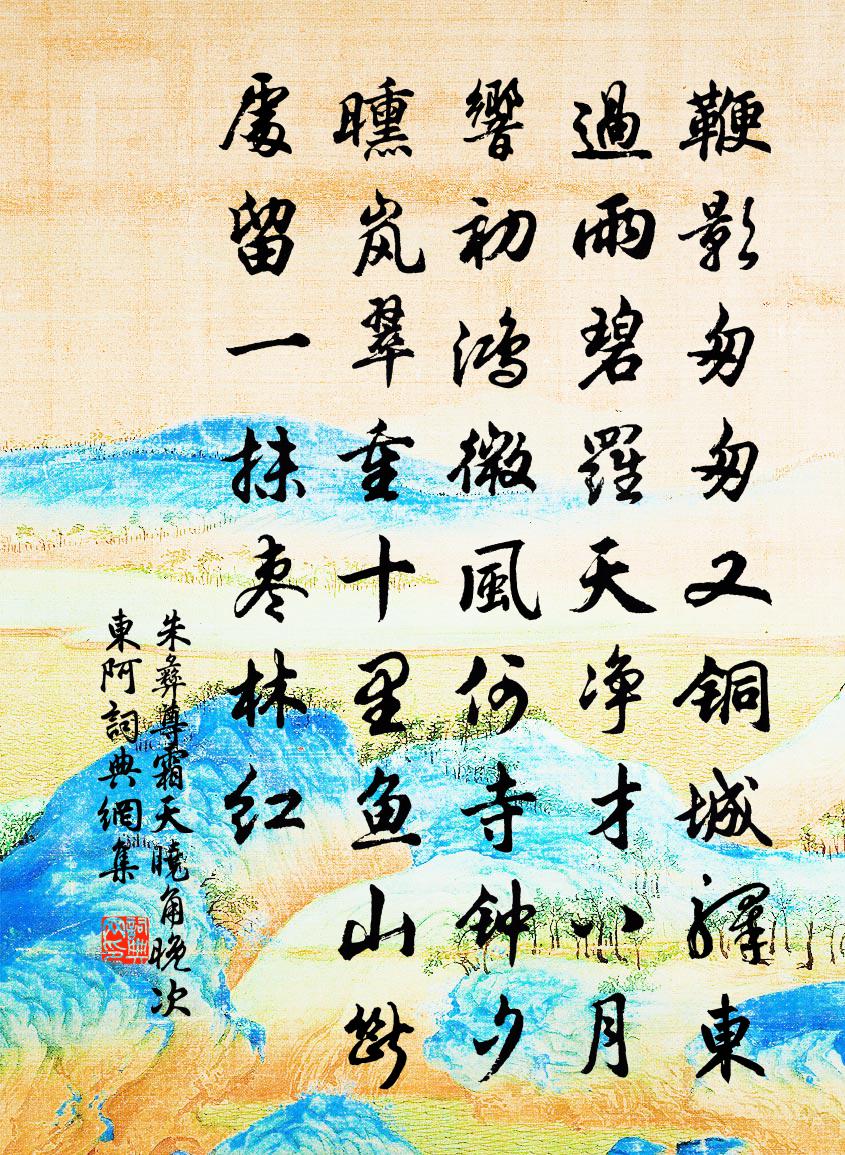 鞭影匆匆又铜城驛東
過雨碧羅天净才八月
響初鸿微風何寺钟夕
曛岚翠重十里鱼山断
處留一抹枣林红
朱彝尊霜天曉角晚次
東阿詞典網集